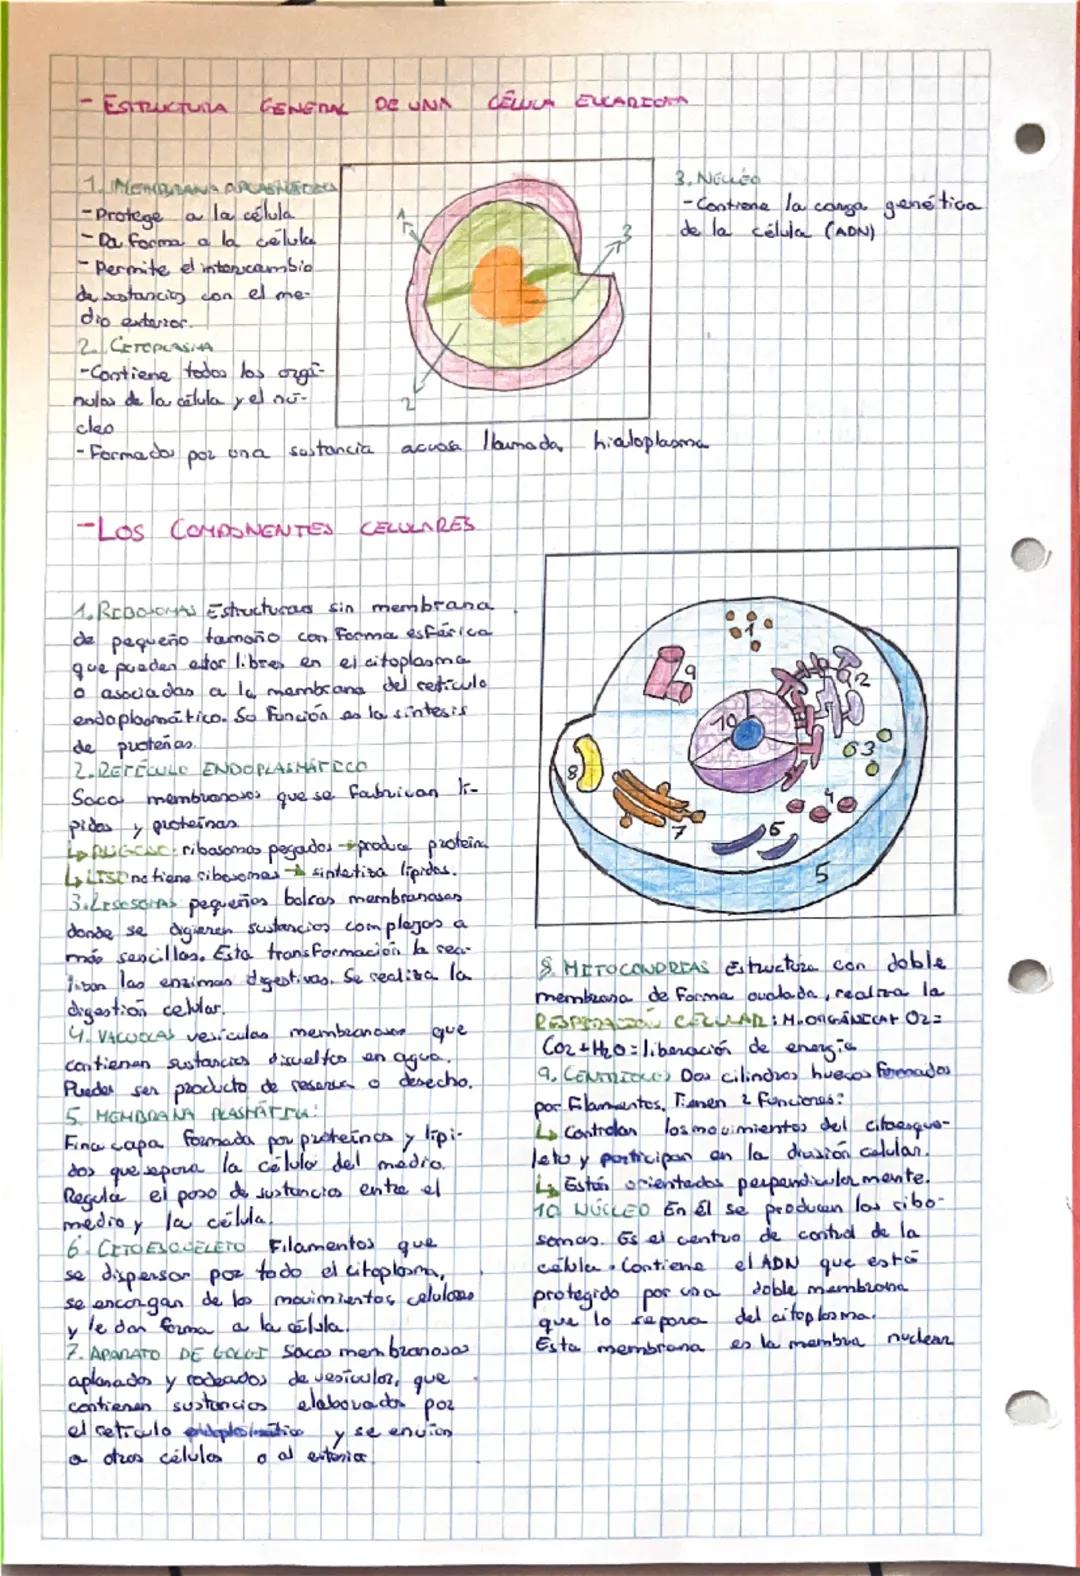 - ESTRUCTURA GENERAL DE UNA CÉLULA EUCARIOTA
1. MEMBRANA PLASMÁTICA
- Protege a la célula
- Da forma a la célula
- Permite el intercambio
de sustancias con el me-
dio exterior.
2. CITOPLASMA
- Contiene todos los orgá-
nulos de la célula y el nú-
cleo
- Formado por una sustancia acuosa llamada hialoplasma
1
2
3
3. NÚCLEO
- Contiene la carga genética
de la célula (ADN)
- LOS COMPONENTES CELULARES
1. RIBOSOMAS Estructuras sin membrana
de pequeño tamaño con forma esférica
que pueden estar libres en el citoplasma
o asociadas a la membrana del retículo
endoplasmático. Su función es la síntesis
de proteínas.
2. RETÍCULO ENDOPLASMÁTICO
Sacos membranosos que se fabrican lí-
pidos y proteínas
↳ RUGOSO: ribosomas pegados → produce proteína
↳ LISO no tiene ribosomas → sintetiza lípidos.
3. LISOSOMAS pequeñas bolsas membranosas
donde se digieren sustancias complejas a
más sencillas. Esta transformación la rea-
lizan las enzimas digestivas. Se realiza la
digestión celular.
4. VACUOLAS vesículas membranosas que
contienen sustancias disueltas en agua.
Pueden ser producto de reserva o desecho.
5. MEMBRANA PLASMÁTICA:
Fina capa formada por proteínas y lípi-
dos que separa la célula del medio.
Regula el paso de sustancias entre el
medio y la célula.
6. CITOESQUELETO Filamentos que
se dispersan por todo el citoplasma,
se encargan de los movimientos celulares
y le dan forma a la célula.
7. APARATO DE GOLGI Sacos membranosos
aplanados y rodeados de vesículas, que
contienen sustancias elaboradas por
el retículo endoplasmático y se envían
a otras células o al exterior.
1
9
2
10
3
8
4
7
6
5
8. MITOCONDRIAS Estructura con doble
membrana de forma ovalada, realiza la
RESPIRACIÓN CELULAR: M.ORGÁNICA+ O2=
CO2+H2O=liberación de energía
9. CENTRIOLOS Dos cilindros huecos formados
por filamentos. Tienen 2 funciones:
↳ Controlan los movimientos del citoesque-
leto y participan en la división celular.
↳ Están orientados perpendicularmente.
10 NÚCLEO En él se producen los ribo-
somas. Es el centro de control de la
célula. Contiene el ADN que está
protegido por una doble membrana
que lo separa del citoplasma.
Esta membrana es la membra nuclear